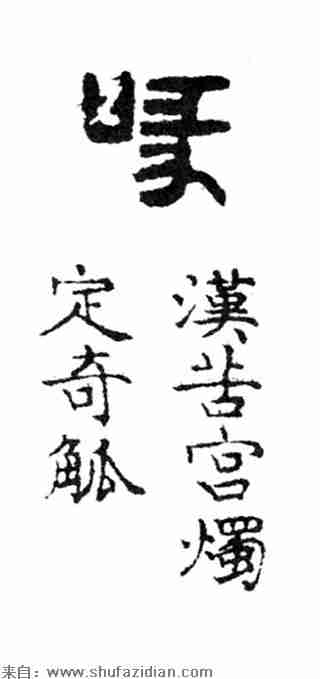 漢苦宫燭
定奇觚
来自：www.shufazidian.com